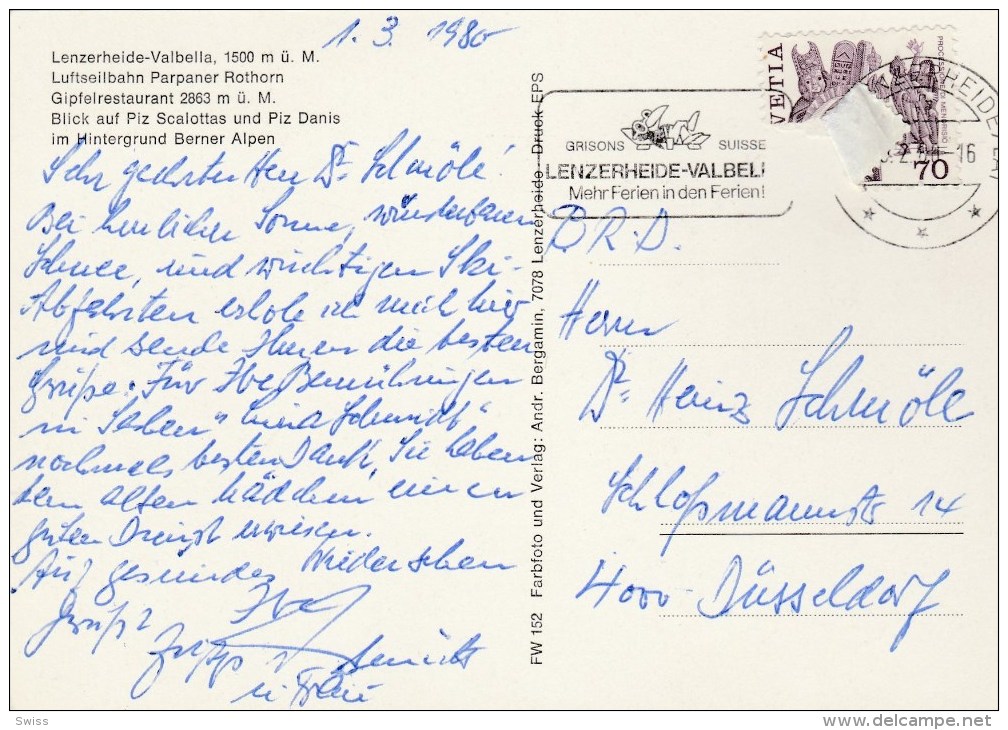 1. 3. 1980
Lenzerheide-Valbella, 1500 m ü. M.
Luftseilbahn Parpaner Rothorn
Gipfelrestaurant 2863 m ü. M.
Blick auf Piz Scalottas und Piz Danis
im Hintergrund Berner Alpen
Sehr geehrter Herr Dr. Schmöle!
Bei herrlicher Sonne, wunderbarem
Schnee, und wuchtigen Ski-
Abfahrten erhole ich mich hier
und sende Ihnen die besten
Grüße. Für Ihre Bemühungen
in Sachen "
nochmals besten Dank, Sie haben
dem alten Mädchen einen
guten Dienst erwiesen.
Auf gesundes Wiedersehen
grüßt Ihr
u. Frau
FW 152 Farbfoto und Verlag: Andr. Bergamin, 7078 Lenzerheide Druck EPS
GRISONS SUISSE
LENZERHEIDE-VALBELL
Mehr Ferien in den Ferien!
VETIA
70
NZERHEIDE
16
BRD.
Herrn
Dr. Heinz Schmöle
Schloßmannstr 14
4000 Düsseldorf
Swiss
delcampe.net